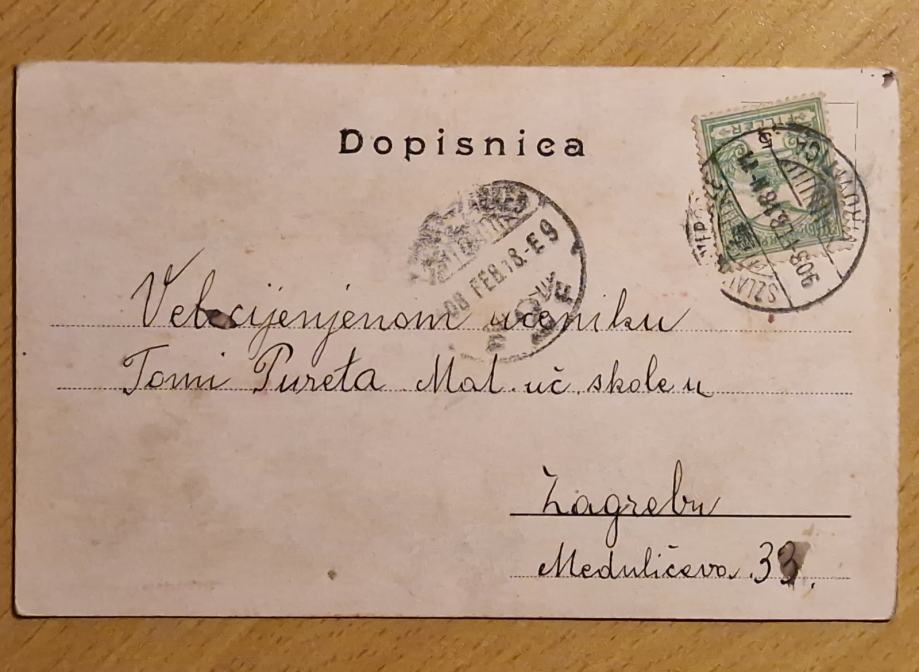 Dopisnica
FILLER
903 FEB 18
SZLAT
08 FEB.18.-E 9
Velecijenjenom učeniku
Tomi Pureta Mal. uč. skole u
Zagrebu
Medulićeva 33.